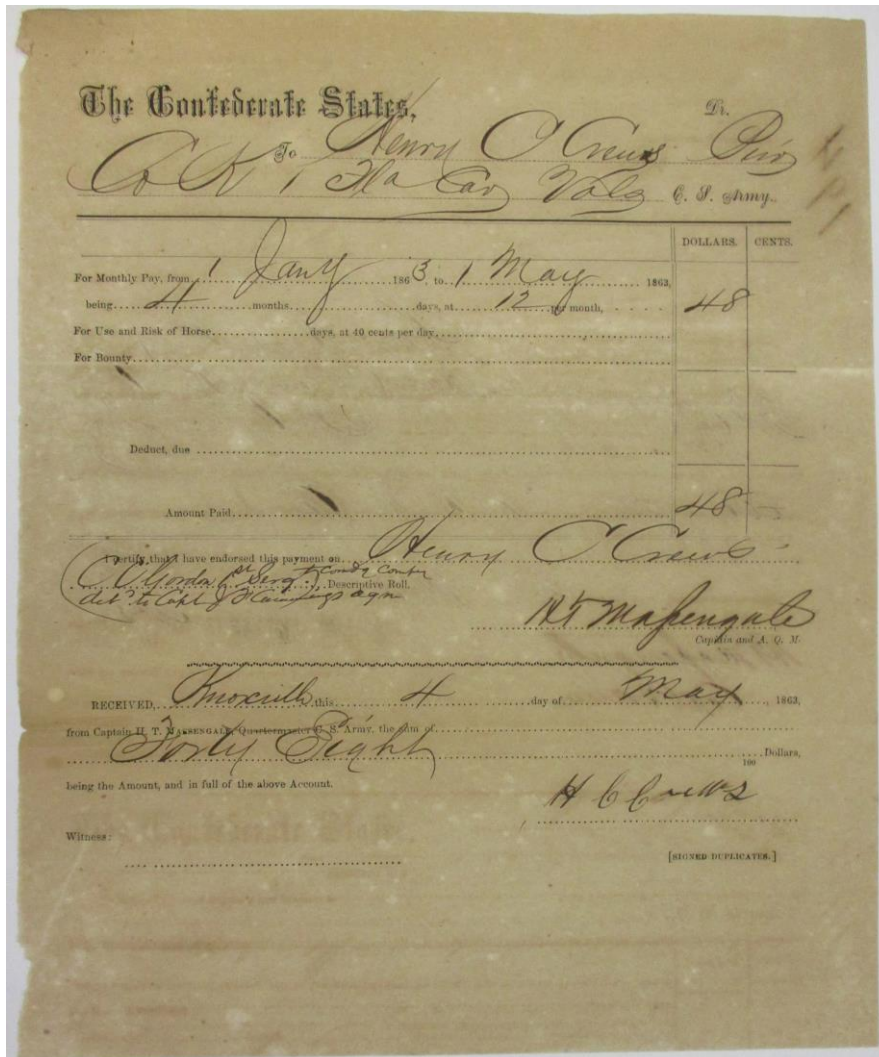 The Confederate States, Dr.
To Henry C Crews Priv
Co K 1 Fla Cav Vols C. S. Army.
DOLLARS. CENTS.
For Monthly Pay, from 1 Jany 1863, to 1 May 1863,
being 4 months days, at 12 per month, 48
For Use and Risk of Horse days, at 40 cents per day,
For Bounty
Deduct, due
Amount Paid 48
I certify, that I have endorsed this payment on Henry C Crews
Gordon 1st Sergt Comdg Compy Descriptive Roll.
to Capt J Cummings aqm
H T Massengale
Captain and A. Q. M.
RECEIVED, Knoxville this 4 day of May, 1863,
from Captain H. T. MASSENGALE, Quartermaster C. S. Army, the sum of
Forty Eight 100 Dollars,
being the Amount, and in full of the above Account.
H C Crews
Witness:
[SIGNED DUPLICATES.]